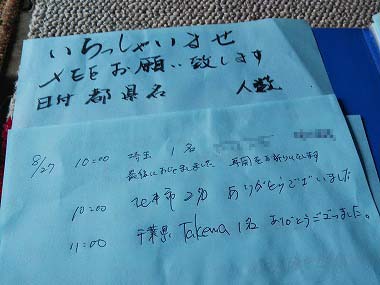 いらっしゃいませ
メモをお願い致します
日付 都県名 人数
8/27 10:00 埼玉 1名
最後におじゃましました
10:00 2名 ありがとうございました
11:00 千葉県 Takewa 1名 ありがとうございました。